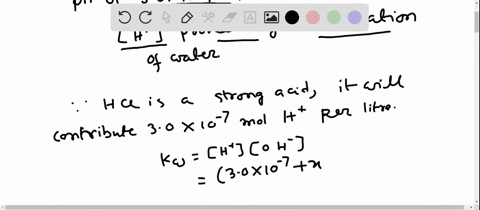 [H⁺]
of water
∵ HCl is a strong acid, it will
contribute 3.0 × 10⁻⁷ mol H⁺ per litre.
Kω = [H⁺][OH⁻]
= (3.0×10⁻⁷ + x